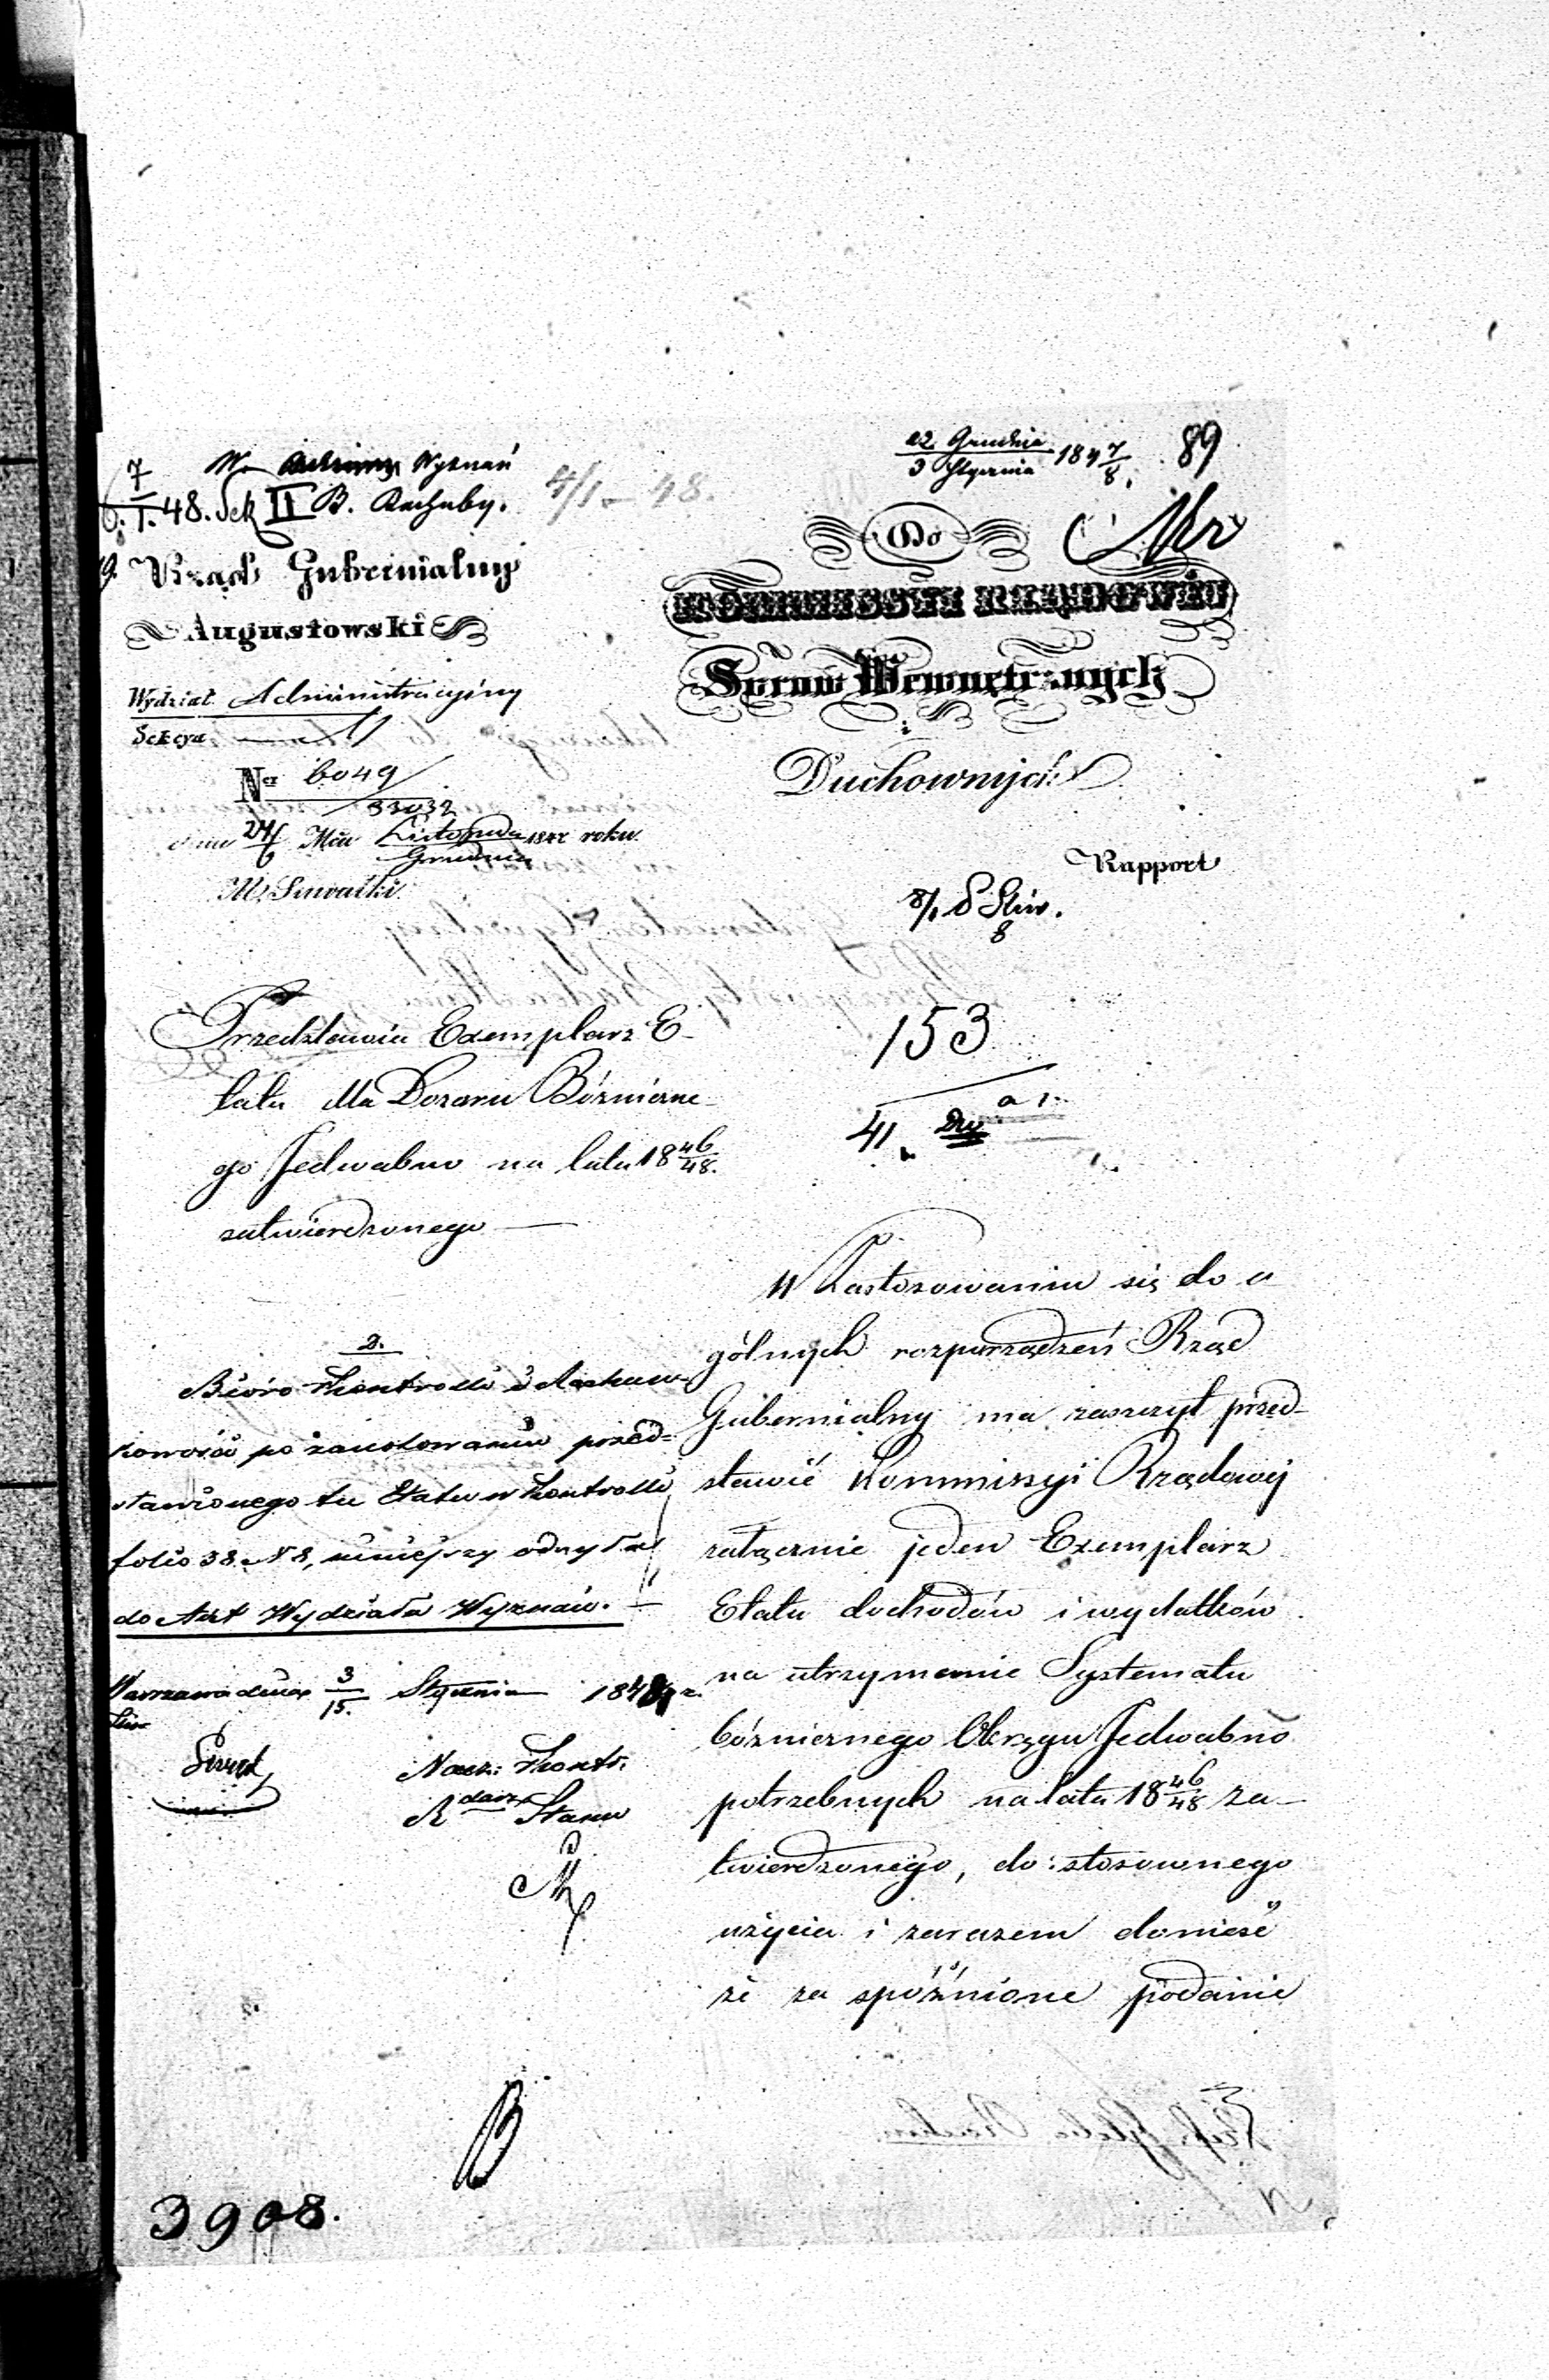 22 Grudnia
3 Stycznia 184 7/8. 89
7/1. 48. Sek II B. Rachuby.
Wyznań
4/1 – 48.
Rząd Gubernialny
Augustowski
Wydział Administracyjny
Sekcya
Ner 6049/33032
dnia 24/6 Mca Listopada/Grudnia 1847 roku
M. Suwałki
Do
KOMMISSYI RZĄDOWÉJ
Spraw Wewnętrznych
i
Duchownych
Rapport
8/1
8
153
41
Przedstawia Exemplarz E-
tatu dla Dozoru Bóżniczne-
go Jedwabno na lata 18 46/48.
zatwierdzonego —
2.
Bióro Kontrolli i Rachun-
kowości po zanotowaniu przed-
stawionego tu Etatu w Kontrolli
folio 38. N 8, niniejszy odsyła
do Akt Wydziału Wyznań. —
Warszawa dnia 3/15. Stycznia 1848 r.
Nacz: Kontr.
R dca Stanu
W Zastosowaniu się do o
gólnych rozporządzeń Rząd
Gubernialny ma zaszczyt przed-
stawić Kommissyi Rządowej
załącznie jeden Exemplarz
Etatu dochodów i wydatków
na utrzymanie Systematu
bóżnicznego Okręgu Jedwabno
potrzebnych na lata 18 46/48 za-
twierdzonego, do stosownego
użycia i zarazem donieść
że za spóźnione podanie
3908.